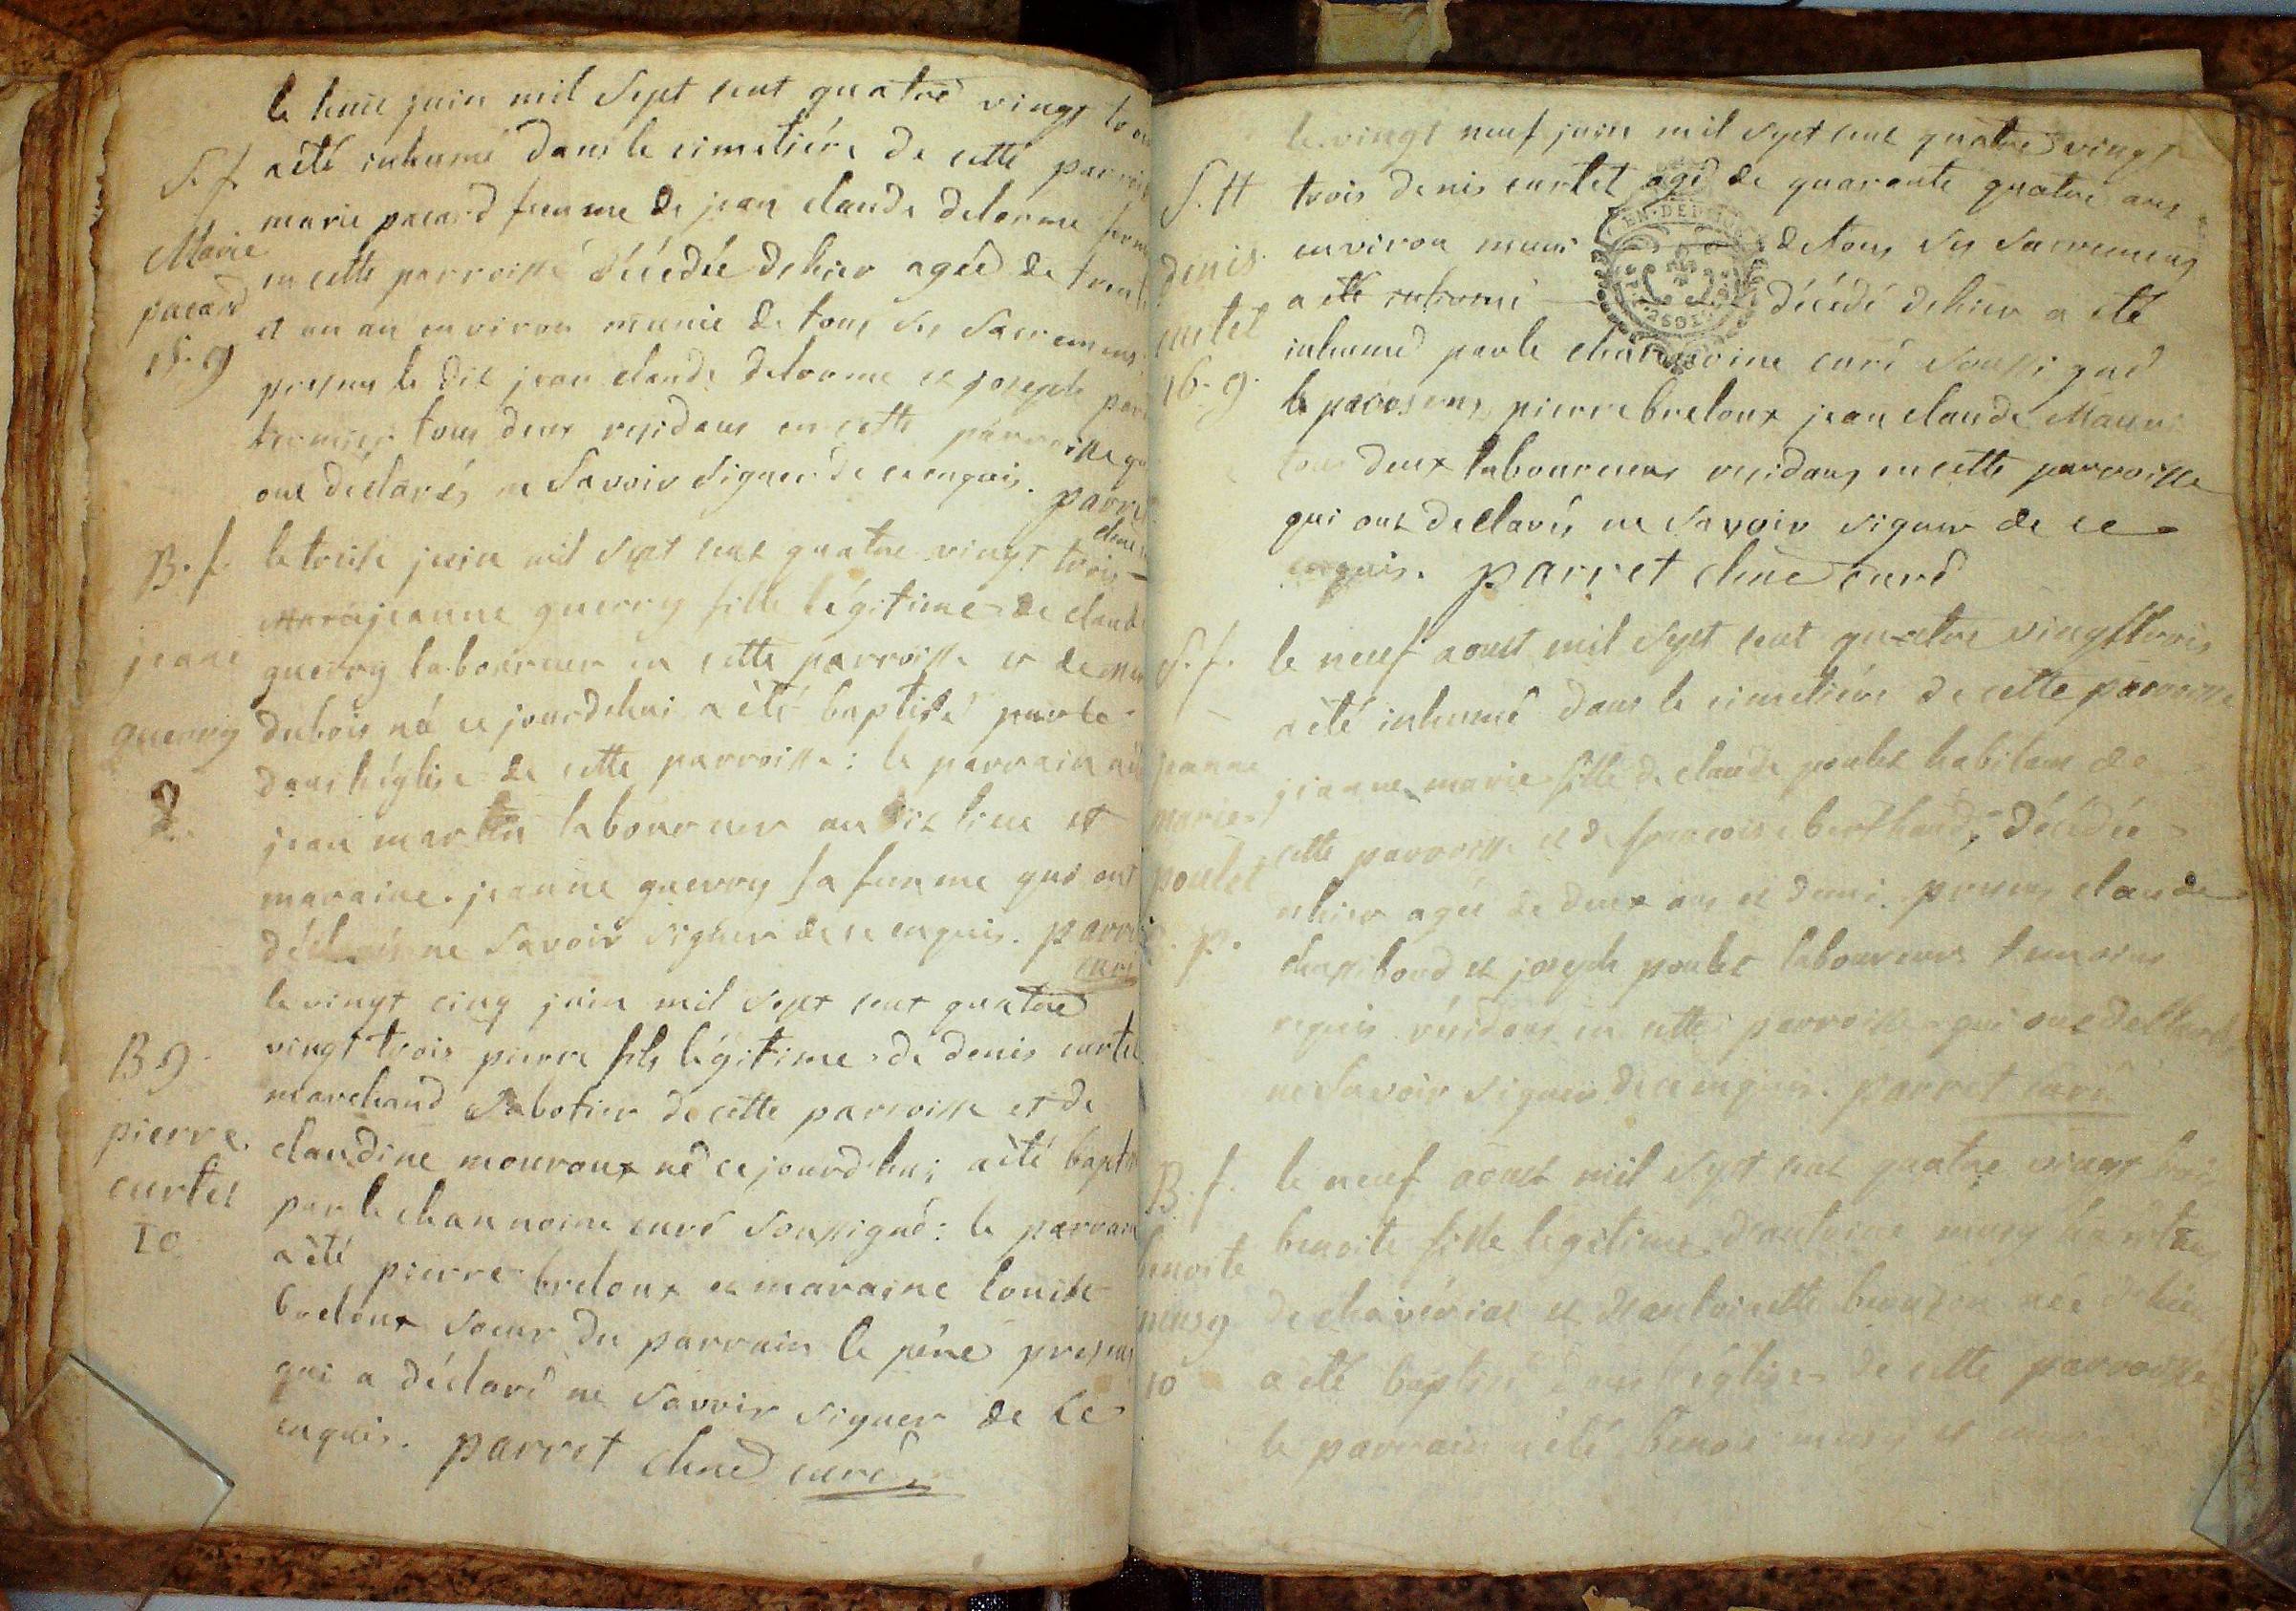 le huit juin mil sept cent quatre vingt
S. f. a été inhumé dans le cimetiére de cette
Marie pacard
15. 9
marie pacard femme de jean claude delorme
en cette parroisse décédée d'hier agée de
et un an environ munie de tous ses sacremens
presens le dit jean claude delorme et joseph
tous deux residans en cette parroisse
ont déclarés ne savoir signer de ce enquis.
B. f.
jeane
guerry
le treise juin mil sept cent quatre vingt trois
jeanne guerry fille légitime de claude
guerry laboureur en cette parroisse et de
dubois né ce jourdhui a été baptisé
dans l'églisе de cette parroisse : le parrain
jean martin laboureur au dit lieu et
maraine jeanne guerry sa femme qui ont
déclarés ne savoir signer de ce enquis.
curé
le vingt cinq juin mil sept cent quatre
B g.
pierre
curtet
10
vingt trois pierre fils légitime de denis curtet
marchand sabotier de cette parroisse et de
claudine mouroux né ce jourd'hui a été
par le channoine curé soussigné : le parrain
a été pierre breloux et maraine louise
breloux soeur du parrain le pére presens
qui a déclaré ne savoir signer de ce
enquis. parret chne curé
le vingt neuf juin mil sept cent quatre vingt
S. H
denis
curtet
16. 9.
trois denis curtet agé de quarante quatre ans
environ muni de tous ses sacremens
a été inhumé décédé d'hier a été
inhumé par le channoine curé soussigné
presens pierre breloux jean claude
tous deux laboureurs residans en cette parroisse
qui ont declarés ne savoir signer de ce
enquis. parret chne curé
S. f.
jeanne
marie
poulet
p.
le neuf aoust mil sept cent quatre vingt trois
a été inhumé dans le cimetiére de cette parroisse
jeanne marie fille de claude poulet habitant de
cette parroisse et de françoise berthaud, décédée
d'hier agée de deux ans et demi. presens claude
et joseph poulet laboureurs temoins
requis residans en cette parroisse qui ont
ne savoir signer de ce enquis. parret curé
B. f.
benoite
musy
10
le neuf aoust mil sept cent quatre vingt trois
benoite fille légitime d'antoine musy habitant
de et d'antoinette née d'hier
a été baptisé dans l'église de cette parroisse
le parrain a été benoit musy et